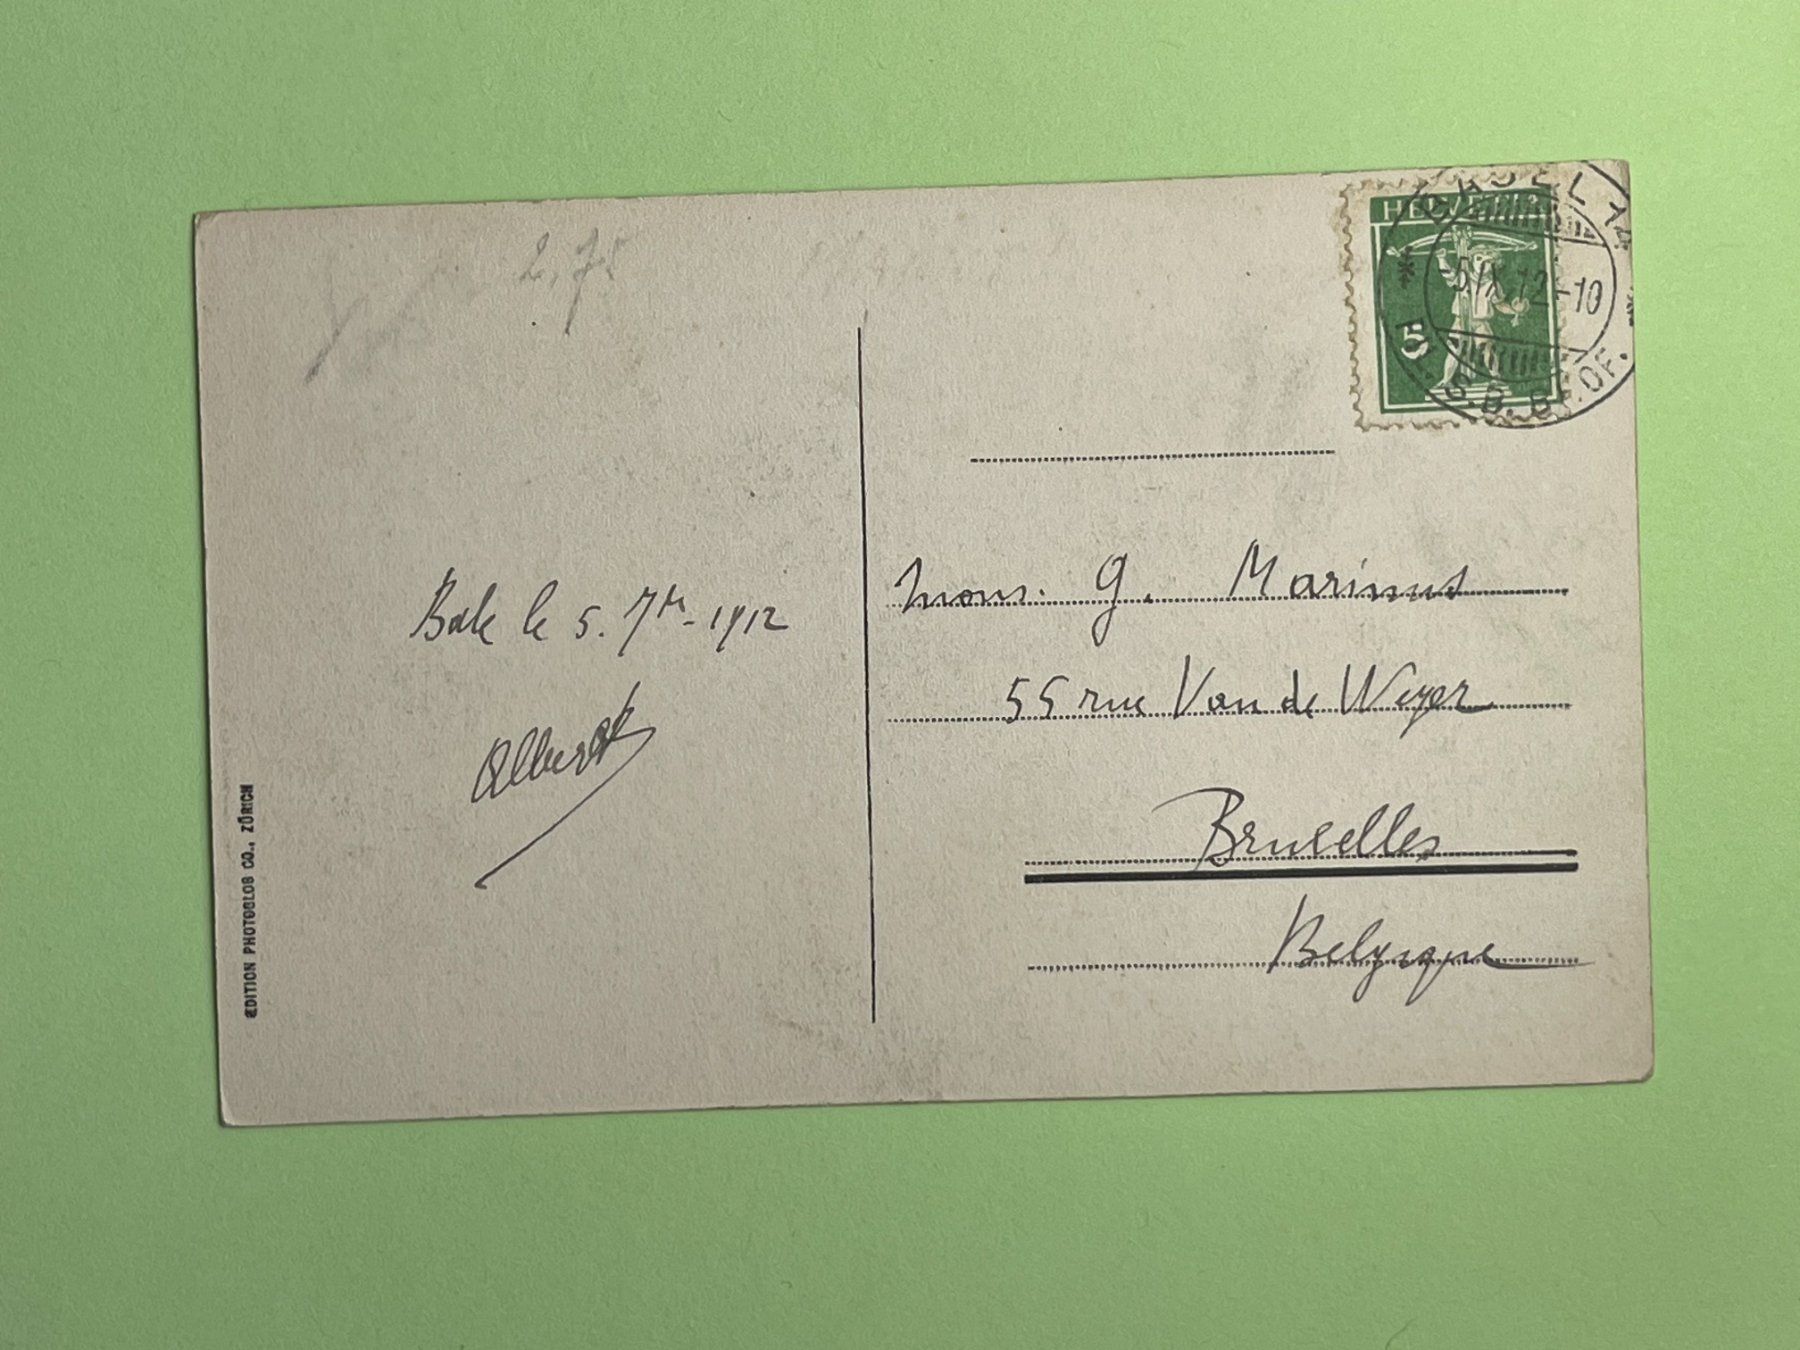 2,75
Bale le 5. 7bre - 1912
Albert
EDITION PHOTOGLOB CO., ZÜRICH
HELVETIA
5
BASEL 14
-5.IX.12.-10
S.B.BHOF.
Mons. G. Marinus
55 rue Van de Weyer
Bruxelles
Belgique